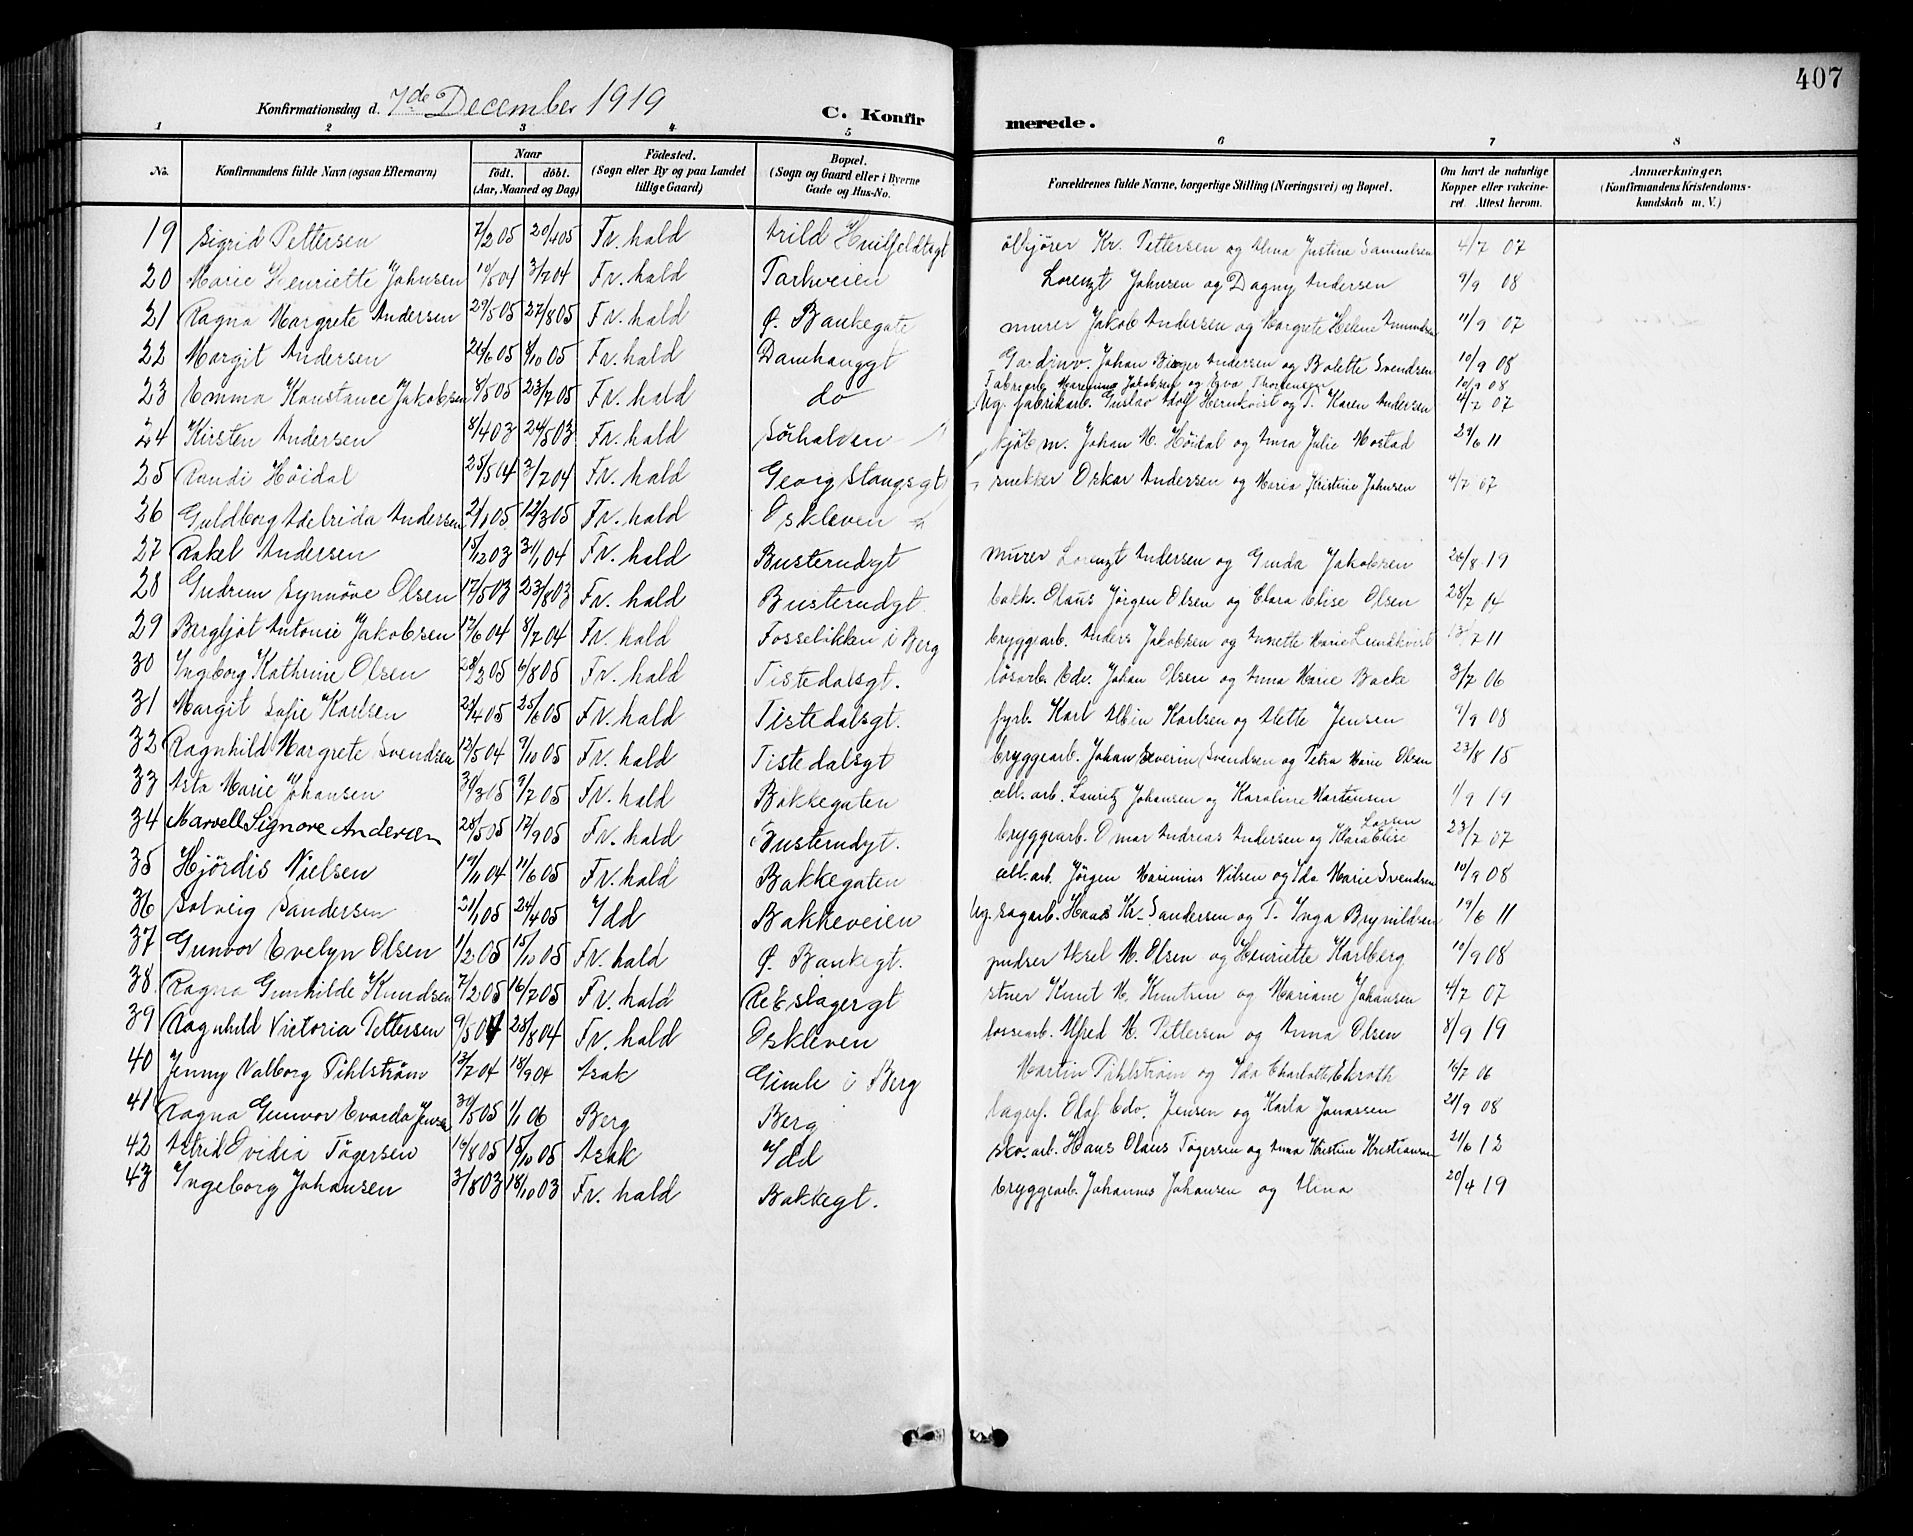 407
Konfirmationsdag d. 7de December 1919 C. Konfirmerede.
1 2 3 4 5 6 7 8
No. Konfirmandens fulde Navn (ogsaa Efternavn) Naar født. døbt. (Aar, Maaned og Dag) Födested. (Sogn eller By og paa Landet tillige Gaard) Bopæl. (Sogn og Gaard eller i Byerne Gade og Hus-No. Forældrenes fulde Navne, borgerlige Stilling (Næringsvei) og Bopæl. Om havt de naturlige Kopper eller vakcineret. Attest herom. Anmærkninger, (Konfirmandens Kristendomskundskab m. V.)
19 Sigrid Pettersen 7/2 05 20/4 05 Fr. hald Arild Huitfeldtsgt ölkjörer Kr. Pettersen og Alma Justine Samuelsen 4/7 07
20 Marie Henriette Johnsen 10/5 04 3/7 04 Fr. hald Parkveien Lorenzt Johnsen og Dagny Andersen 9/9 08
21 Ragna Margrete Andersen 29/5 05 27/8 05 Fr. hald Ø. Bankegate murer Jakob Andersen og Margrete Helene Amundsen 11/9 07
22 Margit Andersen 26/6 05 8/10 05 Fr. hald Damhauggt Gardinv. Johan Birger Andersen og Bolette Svendsen 10/9 08
23 Emma Konstance Jakobsen 8/5 05 23/7 05 Fr. hald do Fabrigarb. Marenius Jakobsen og Eva Thorensen 10/9 08
24 Kirsten Andersen 8/4 03 24/5 03 Fr. hald Sörhalden Ug. fabrikarb. Gustav Adolf Hernkvist og P. Karen Andersen 4/7 07
25 Randi Höidal 25/5 04 3/7 04 Fr. hald Georg Stangsgt kjöbm. Johan M. Höidal og Anna Julie Mostad 29/6 11
26 Guldborg Adelrida Andersen 2/1 05 12/3 05 Fr. hald Oskleven snekker Oskar Andersen og Maria Kristine Johnsen 4/7 07
27 Rakel Andersen 15/12 03 31/1 04 Fr. hald Busterudgt murer Lorenzt Andersen og Gunda Jakobsen 26/8 19
28 Gudrun Synnöve Olsen 17/5 03 23/8 03 Fr. hald Busterudgt. bakk. Olaus Jörgen Olsen og Clara Elise Olsen 28/7 04
29 Bergljot Antonie Jakobsen 12/6 04 8/7 04 Fr. hald Fosselökken i Berg bryggearb. Anders Jakobsen og Annette Marie Lundkvist 13/7 11
30 Ingeborg Kathrine Olsen 28/2 05 6/8 05 Fr. hald Tistedalsgt. lösarb. Edv. Johan Olsen og Anna Marie Backe 3/7 06
31 Margit Sofie Karlsen 23/4 05 25/6 05 Fr. hald Tistedalsgt. fyrb. Karl Albin Karlsen og Alette Jensen 9/9 08
32 Ragnhild Margrete Svendsen 13/5 04 9/10 05 Fr. hald Tistedalsgt bryggearb. Johan Severin Svendsen og Petra Marie Olsen 23/8 15
33 Asta Marie Johansen 30/3 05 9/7 05 Fr. hald Bakkegaten cell. arb. Lauritz Johansen og Karoline Martensen 1/9 19
34 Marvell Signore Andersen 28/5 05 17/9 05 Fr. hald Busterudgt. bryggearb. Omar Andreas Andersen og Klara Elise Larsen 23/7 07
35 Hjördis Nielsen 19/11 04 11/6 05 Fr. hald Bakkegaten cell. arb. Jörgen Marinius Nilsen og Ida Marie Svendsen 10/9 08
36 Solveig Sandersen 21/1 05 24/4 05 Idd Bakkeveien Ug. sagarb. Hans Kr. Sandersen og P. Inga Brynildsen 19/6 11
37 Gunvor Evelyn Olsen 1/2 05 15/10 05 Fr. hald Ø. Bankegt. pudser Aksel M. Olsen og Henriette Karlberg 10/9 08
38 Ragna Gunhilde Knudsen 7/2 05 16/7 05 Fr. hald Reeslagergt stuer Knut M. Knutsen og Mariane Johansen 4/7 07
39 Ragnhild Victoria Pettersen 9/5 04 28/8 04 Fr. hald Oskleven lossearb. Alfred M. Pettersen og Anna Olsen 8/9 19
40 Jenny Valborg Pihlström 13/7 04 18/9 04 Asak Gimle i Berg Martin Pihlström og Ida Charlotte Ekroth 16/7 06
41 Ragna Gunvor Evarda Jensen 31/5 05 1/1 06 Berg Berg lagerf. Olaf Edv. Jensen og Karla Jonassen 21/9 08
42 Astrid Ovidia Tögersen 19/8 05 15/10 05 Asak Idd sko.arb. Hans Olaus Tögersen og Anna Kristine Kristiansen 21/6 12
43 Ingeborg Johansen 31/8 03 18/10 03 Fr. hald Bakkegt. bryggearb. Johannes Johansen og Alma 20/4 19